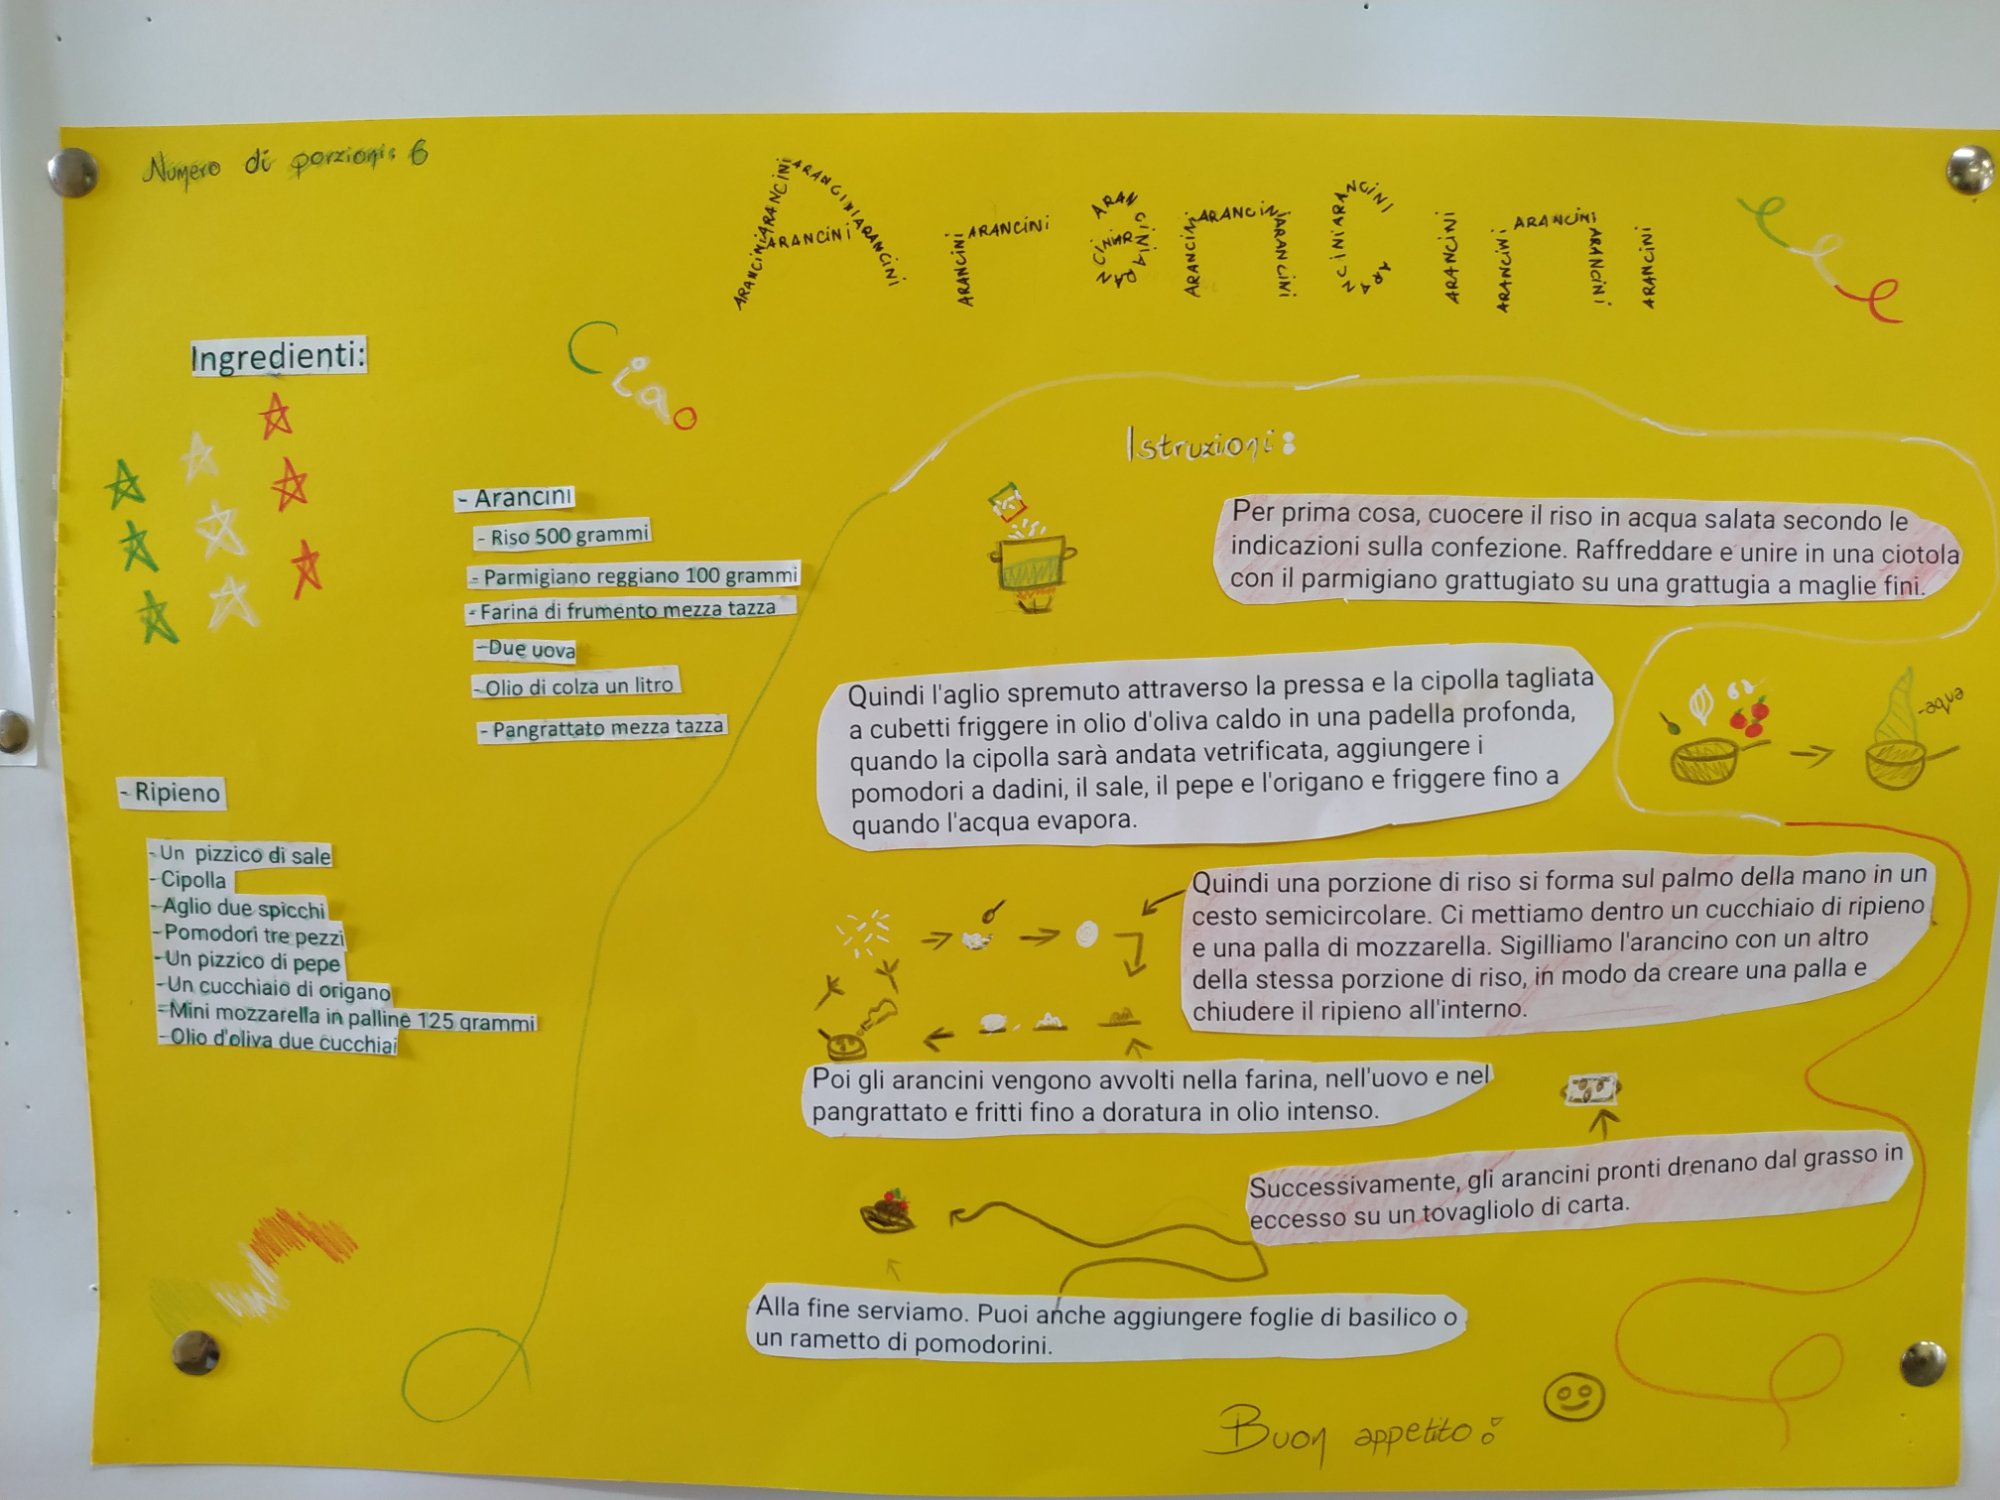 Numero di porzioni: 6
Arancini
Ciao
Ingredienti:
- Arancini
- Riso 500 grammi
- Parmigiano reggiano 100 grammi
- Farina di frumento mezza tazza
- Due uova
- Olio di colza un litro
- Pangrattato mezza tazza
- Ripieno
- Un pizzico di sale
- Cipolla
- Aglio due spicchi
- Pomodori tre pezzi
- Un pizzico di pepe
- Un cucchiaio di origano
- Mini mozzarella in palline 125 grammi
- Olio d'oliva due cucchiai
Istruzioni:
Per prima cosa, cuocere il riso in acqua salata secondo le
indicazioni sulla confezione. Raffreddare e unire in una ciotola
con il parmigiano grattugiato su una grattugia a maglie fini.
Quindi l'aglio spremuto attraverso la pressa e la cipolla tagliata
a cubetti friggere in olio d'oliva caldo in una padella profonda,
quando la cipolla sarà andata vetrificata, aggiungere i
pomodori a dadini, il sale, il pepe e l'origano e friggere fino a
quando l'acqua evapora.
-aqua
Quindi una porzione di riso si forma sul palmo della mano in un
cesto semicircolare. Ci mettiamo dentro un cucchiaio di ripieno
e una palla di mozzarella. Sigilliamo l'arancino con un altro
della stessa porzione di riso, in modo da creare una palla e
chiudere il ripieno all'interno.
Poi gli arancini vengono avvolti nella farina, nell'uovo e nel
pangrattato e fritti fino a doratura in olio intenso.
Successivamente, gli arancini pronti drenano dal grasso in
eccesso su un tovagliolo di carta.
Alla fine serviamo. Puoi anche aggiungere foglie di basilico o
un rametto di pomodorini.
Buon appetito!